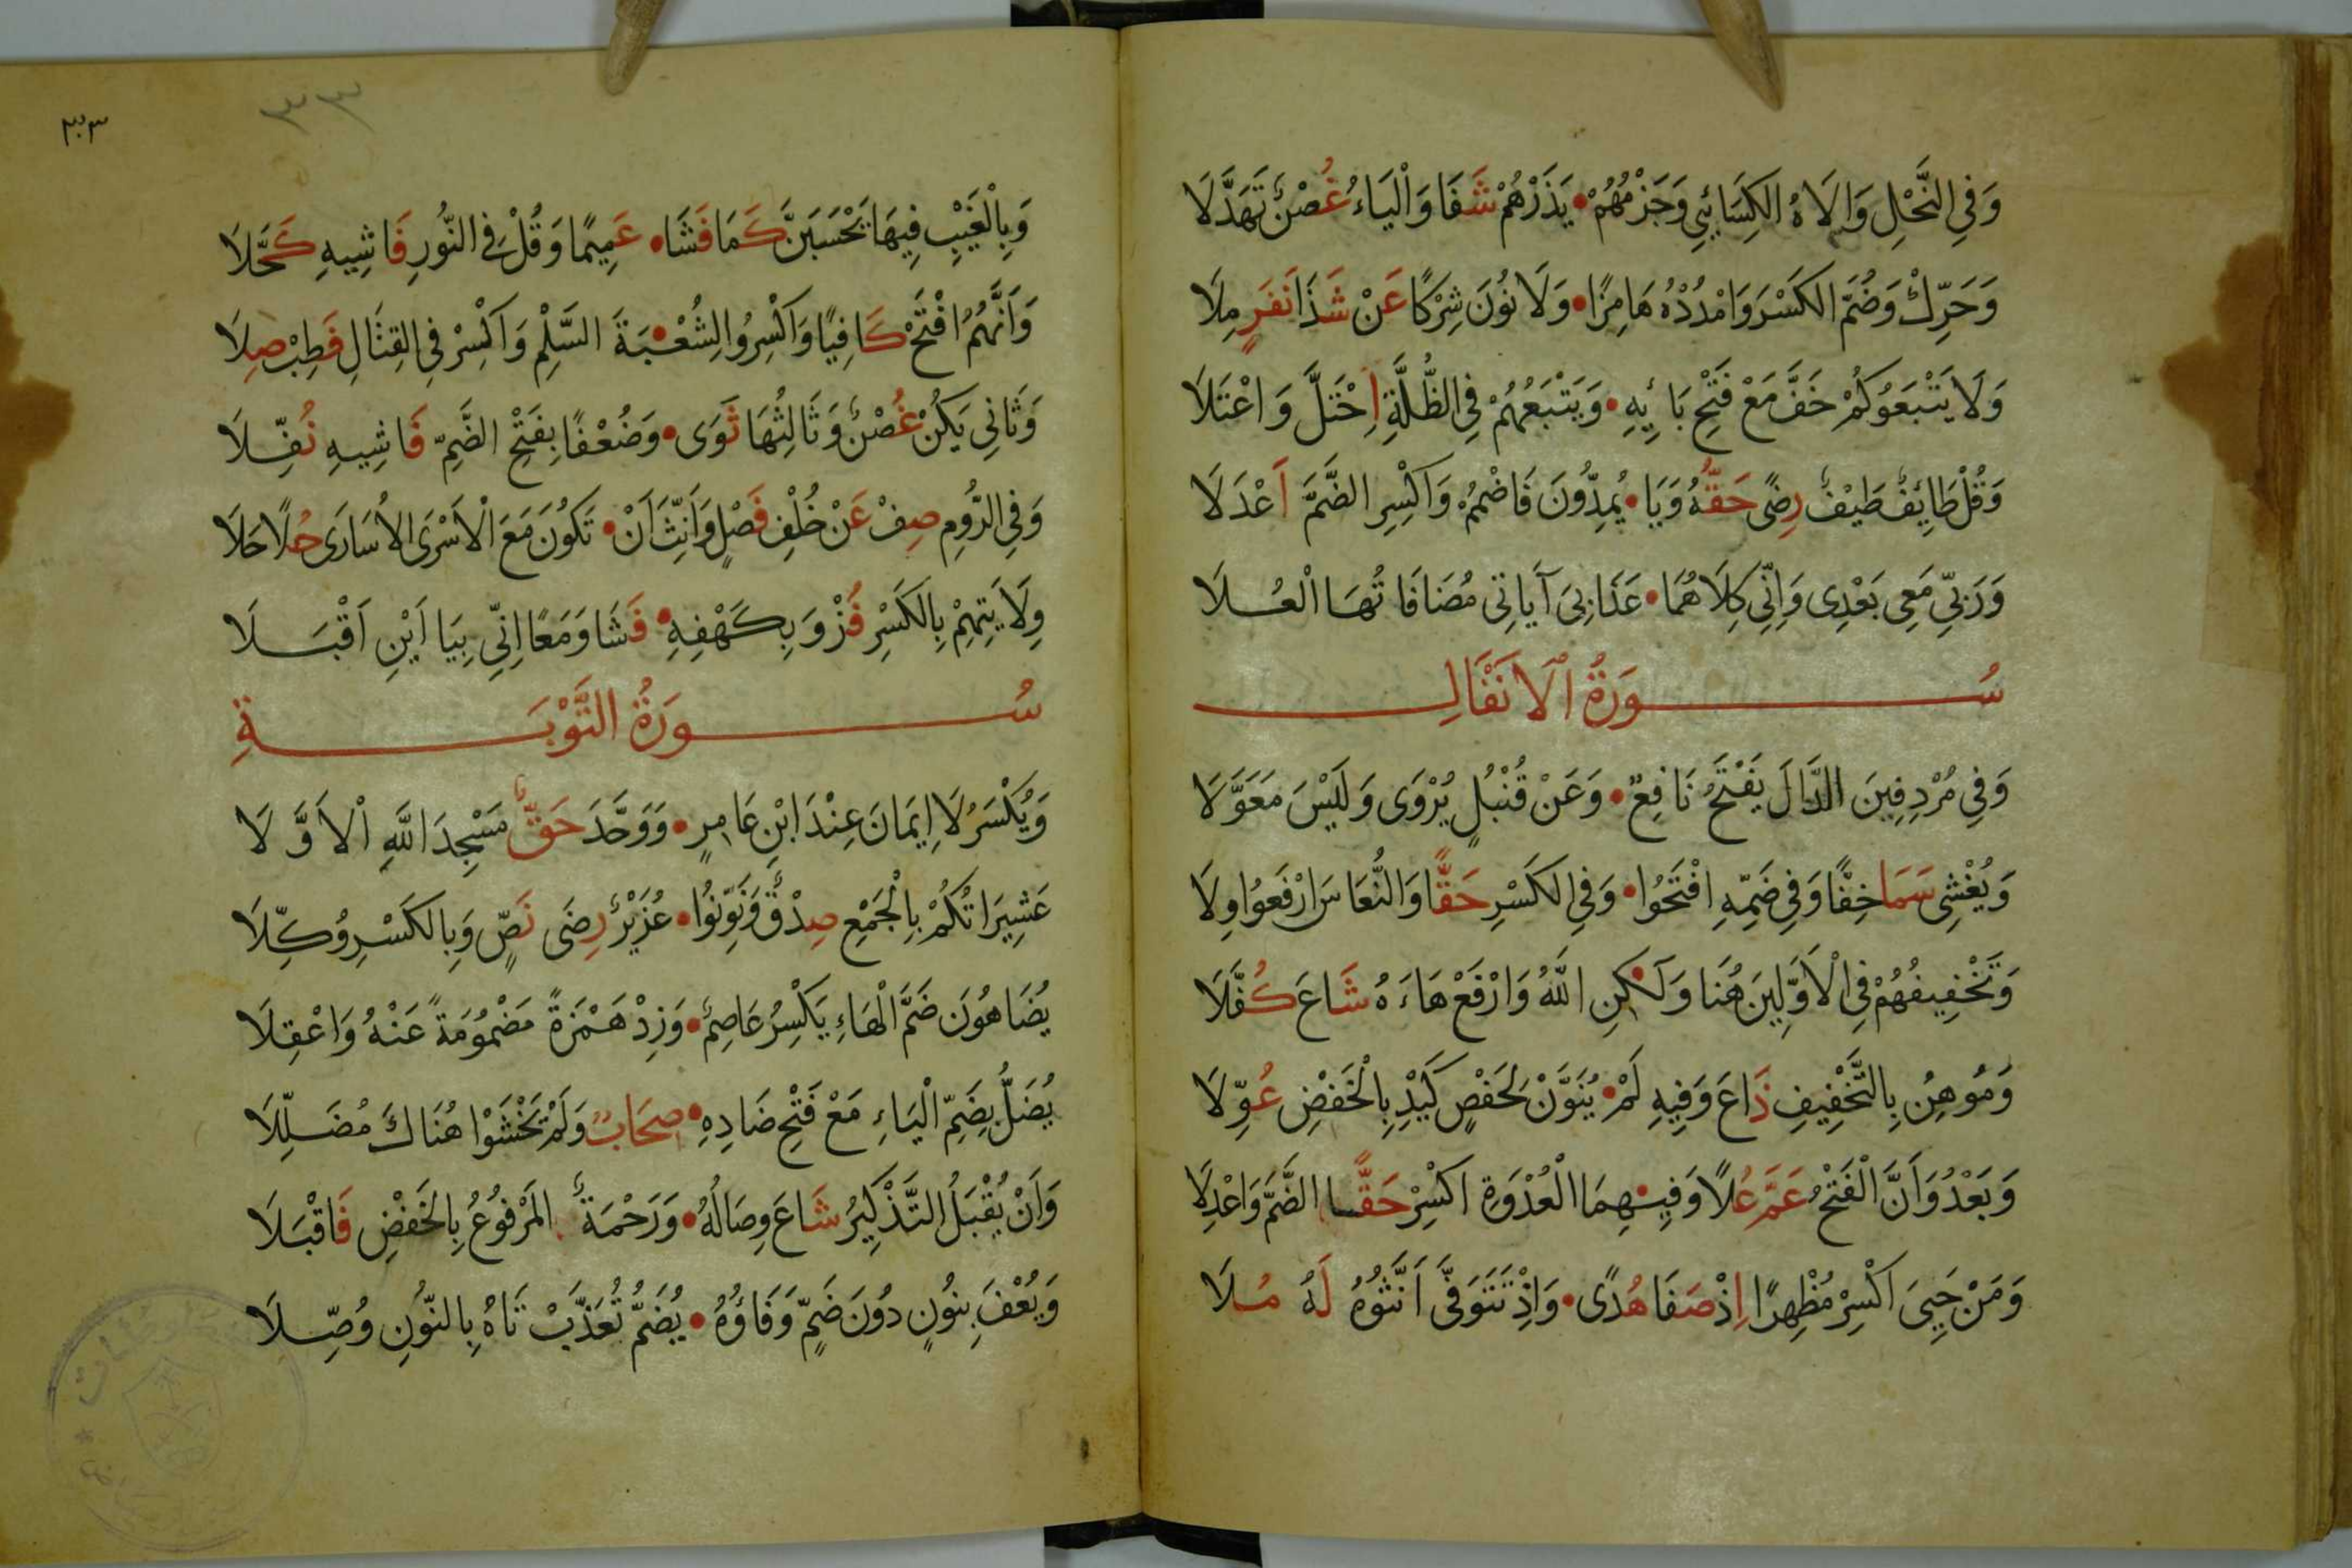 وَفِي النَّحْلِ وَالَاهُ الكِسَائِي وَجَزْمُهُمْ • يَذَرْهُمْ شَفَا وَالْيَاءُ غُصْنٌ تَهَدَّلَا
وَحَرِّكْ وَضُمَّ الكَسْرَ وَامْدُدْهُ هَامِزًا • وَلَا نُونَ شِرْكًا عَنْ شَذَا نَفَرٍ مِلَا
وَلَا يَتْبَعُوكُمْ خَفَّ مَعْ فَتْحِ بَائِهِ • وَيَتْبَعُهُمْ فِي الظُّلَّةِ احْتَلَّ وَاعْتَلَا
وَقُلْ طَائِفٌ طَيْفٌ رِضًى حَقُّهُ وَيَا • يُمِدُّونَ فَاضْمُمْ وَاكْسِرِ الضَّمَّ أَعْدَلَا
وَرَبِّي مَعِي بَعْدِي وَإِنِّي كِلَاهُمَا • عَذَابِيَ آيَاتِي مُضَافَاتُهَا الْعُلَا
سُورَةُ الْأَنْفَالِ
وَفِي مُرْدِفِينَ الدَّالَ يَفْتَحُ نَافِعٌ • وَعَنْ قُنْبُلٍ يُرْوَى وَلَيْسَ مُعَوَّلَا
وَيُغْشِي سَمَا خِفًّا وَفِي ضَمِّهِ افْتَحُوا • وَفِي الكَسْرِ حَقًّا وَالنُّعَاسَ ارْفَعُوا وِلَا
وَتَخْفِيفُهُمْ فِي الْأَوَّلِينَ هُنَا وَلَكِنِ • اللَّهُ وَارْفَعْ هَاءَهُ شَاعَ كُفَّلَا
وَمُوهِنُ بِالتَّخْفِيفِ ذَاعَ وَفِيهِ لَمْ • يُنَوَّنْ لِحَفْصٍ كَيْدِ بِالْخَفْضِ عُوِّلَا
وَبَعْدُ وَأَنَّ الْفَتْحُ عَمَّ عُلًا وَفِيهِمَا • الْعُدْوَةِ اكْسِرْ حَقًّا الضَّمَّ وَاعْدِلَا
وَمَنْ حَيِيَ اكْسِرْ مُظْهِرًا إِذْ صَفَا هُدًى • وَإِذْ تَتَوَفَّى أَنَّثُوهُ لَهُ مُلَا
٣٣
٣٣
وَبِالْغَيْبِ فِيهَا يَحْسَبَنَّ كَمَا فَشَا • عَمِيمًا وَقُلْ فِي النُّورِ فَاشِيهِ كَحَّلَا
وَأَنَّهُمُ افْتَحْ كَافِيًا وَاكْسِرُوا لِشُعْبَةَ • السَّلْمِ وَاكْسِرْ فِي القِتَالِ فَطِبْ صِلَا
وَثَانِي يَكُنْ غُصْنٌ وَثَالِثُهَا ثَوَى • وَضُعْفًا بِفَتْحِ الضَّمِّ فَاشِيهِ نُفِّلَا
وَفِي الرُّومِ صِفْ عَنْ خُلْفِ فَصْلٍ وَأَنِّثْ أَنْ • تَكُونَ مَعَ الْأَسْرَى الأُسَارَى حُلًا حَلَا
وِلَايَتِهِمْ بِالكَسْرِ فُزْ وَبِكَهْفِهِ • فَشَا وَمَعًا إِنِّي بِيَاأَيْنِ أَقْبَلَا
سُورَةُ التَّوْبَةِ
وَيُكْسَرُ لَا إِيمَانَ عِنْدَ ابْنِ عَامِرٍ • وَوَحَّدَ حَقٌّ مَسْجِدَ اللَّهِ الْأَوَّلَا
عَشِيرَاتُكُمْ بِالْجَمْعِ صِدْقٌ وَنَوِّنُوا • عُزَيْرٌ رِضَى نَصٍّ وَبِالكَسْرِ وُكِّلَا
يُضَاهُونَ ضَمَّ الْهَاءِ يَكْسِرُ عَاصِمٌ • وَزِدْ هَمْزَةً مَضْمُومَةً عَنْهُ وَاعْقِلَا
يُضَلُّ بِضَمِّ الْيَاءِ مَعْ فَتْحِ ضَادِهِ • صِحَابٌ وَلَمْ يَخْشَوْا هُنَاكَ مُضَلِّلَا
وَأَنْ يُقْبَلُ التَّذْكِيرُ شَاعَ وِصَالُهُ • وَرَحْمَةٌ المَرْفُوعُ بِالخَفْضِ فَاقْبَلَا
وَيُعْفَ بِنُونٍ دُونَ ضَمٍّ وَفَاؤُهُ • يُضَمُّ تُعَذَّبْ تَاهُ بِالنُّونِ وُصِّلَا